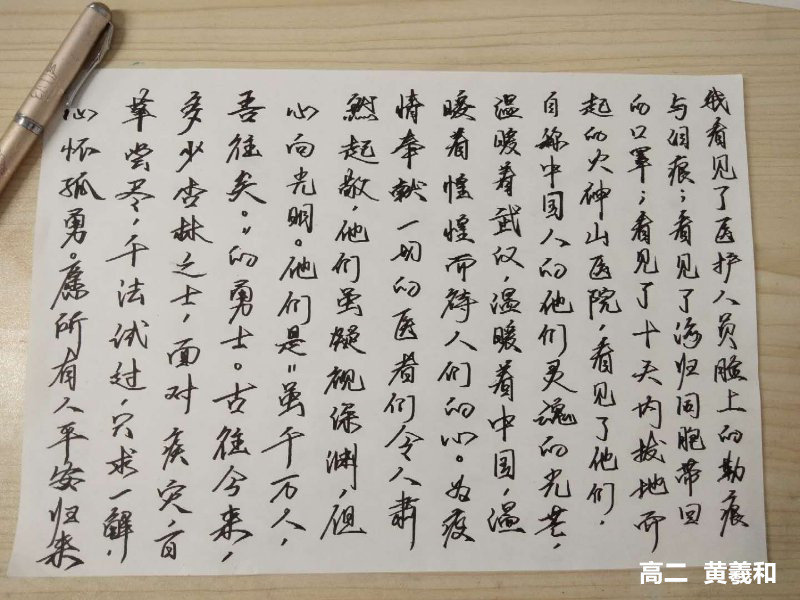 我看见了医护人员脸上的勒痕
与泪痕；看见了海归同胞带回
的口罩；看见了十天内拔地而
起的火神山医院，看见了他们，
自称中国人的他们灵魂的光芒，
温暖着武汉，温暖着中国，温
暖着惶惶而待人们的心。为疫
情奉献一切的医者们令人肃
然起敬，他们虽凝视深渊，但
心向光明。他们是“虽千万人，
吾往矣。”的勇士。古往今来，
多少杏林之士，面对疾灾，百
草尝尽，千法试过，只求一解，
心怀孤勇。愿所有人平安归来
高二 黄羲和